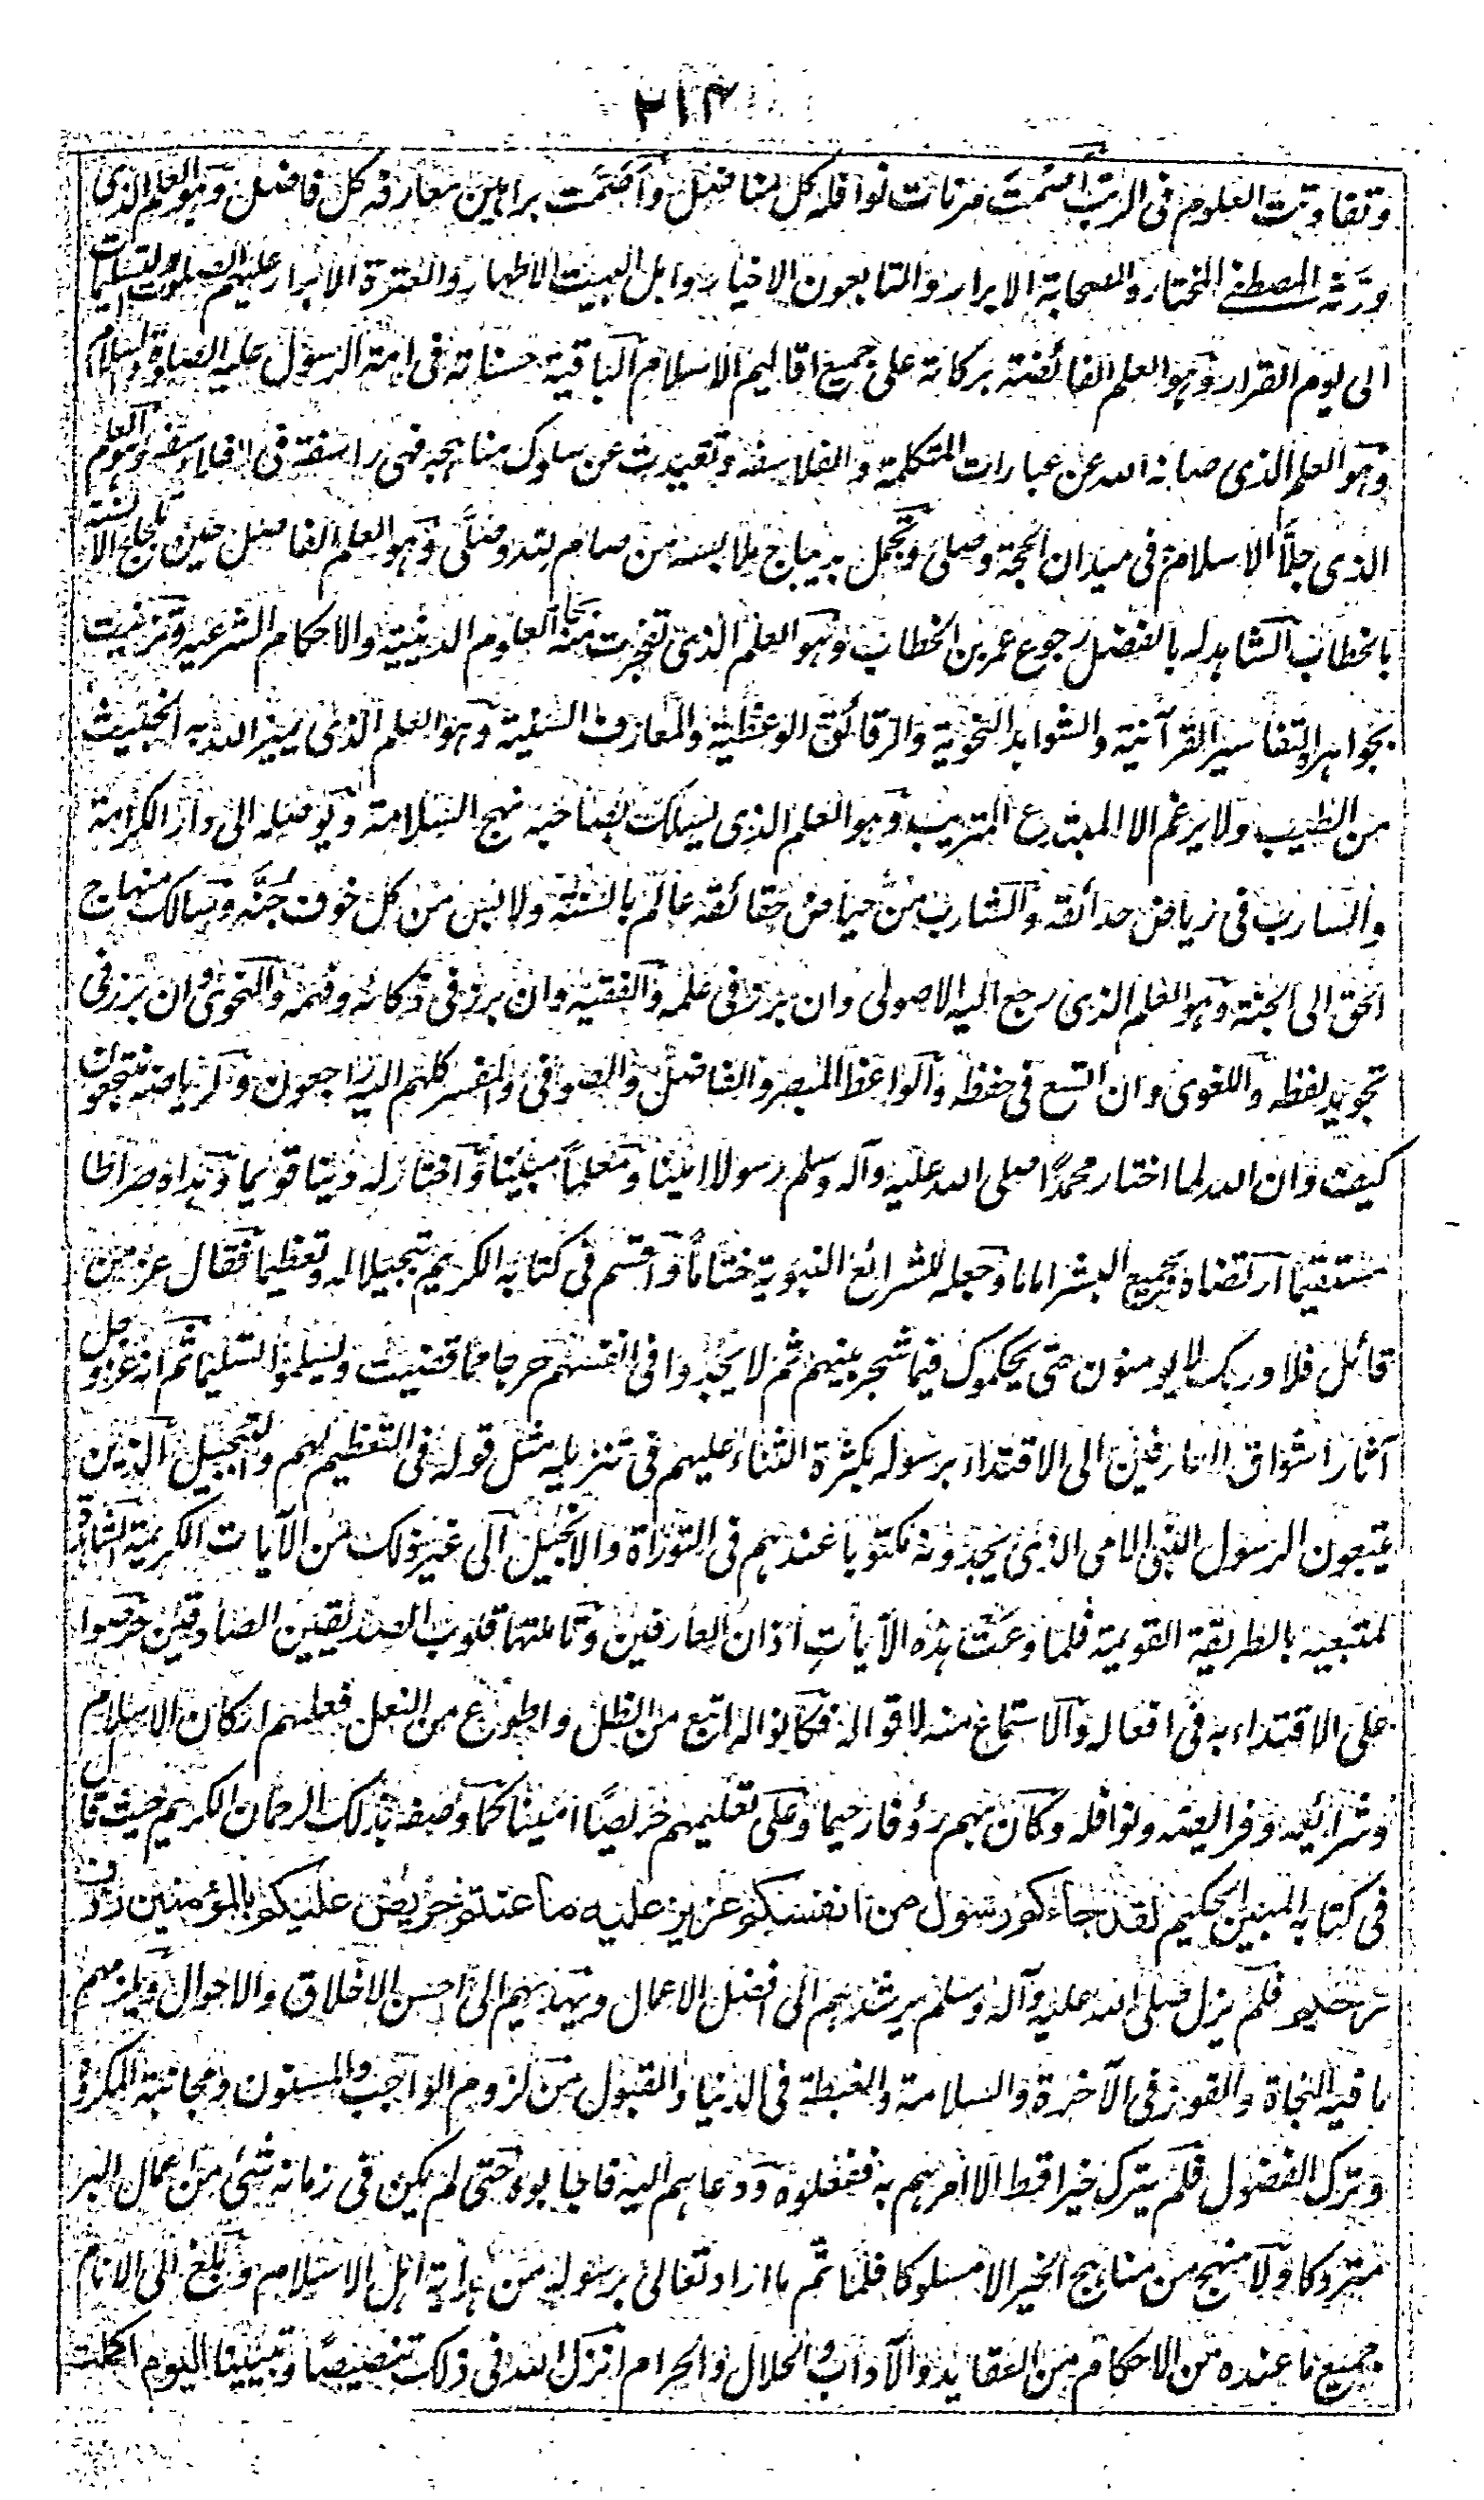 ٢١٤
وتفاوتت العلوم فى الرتب اسمت مزنات نوافله كل مناضل وأصمت براهين معارفه كل فاضل وهو العلم الذى
ورثه المصطفى المختار والصحابة الابرار والتابعون الاخيار واهل البيت الاطهار والعترة الابرار عليهم الصلوات والتسليمات
الى يوم القرار وهو العلم الفائضة بركاته على جميع اقاليم الاسلام الباقية حسناته فى امة الرسول عليه الصلوة والسلام
وهو العلم الذى صانه الله عن عبارات المتكلمة والفلاسفة وتقيدت عن سلوك مناهجه فهى راسفة فى الفلاسفة وهو العلم
الذى جلّا الاسلام فى ميدان الحجة وصلى وتجمل بديباج ملابسه من صام لله وصلى وهو العلم الفاصل حين تلجلج الالسنة
بالخطاب الشاهد له بالفضل رجوع عمر بن الخطاب وهو العلم الذى تفجرت منه بحار العلوم الدينية والاحكام الشرعية وتزينت
بجواهره التفاسير القرآنية والشواهد النحوية والرقائق الوعظية والمعارف السنية وهو العلم الذى يميز الله به الخبيث
من الطيب ولا يرغم الا المبتدع المتريب وهو العلم الذى يسلك بصاحبه نهج السلامة ويوصله الى دار الكرامة
والسارب فى رياض حدائقه والشارب من حياض حقائقه عالم بالسنة ولابس من كل خوف جُنَّه وسالك منهاج
الحق الى الجنة وهو العلم الذى رجع اليه الاصولى وان برز فى علمه والفقيه وان برز فى ذكائه وفهمه والنحوى وان برز فى
تجويد لفظه واللغوى وان اتسع فى حفظه والواعظ المبصر والفاضل والصوفى والمفسر كلهم اليه راجعون ولرياضه منتجعون
كيف وان الله لما اختار محمدًا صلى الله عليه وآله وسلم رسولا امينا ومعلمًا مبينا واختار له دينا قويما وهداه صراطا
مستقيما ارتضاه لجميع البشر اماما وجعله للشرائع النبوية ختامًا واقسم فى كتابه الكريم تبجيلا له وتعظيما فقال عز من
قائل فلا وربك لا يومنون حتى يحكموك فيما شجر بينهم ثم لا يجدوا فى انفسهم حرجا مما قضيت ويسلموا تسليما ثم انه عز وجل
آثار اشواق العارفين الى الاقتداء برسوله بكثرة الثناء عليهم فى تنزيله مثل قوله فى التعظيم لهم والتبجيل الذين
يتبعون الرسول النبى الامى الذى يجدونه مكتوبا عندهم فى التوراة والانجيل الى غير ذلك من الآيات الكريمة الشاهدة
لمتبعيه بالطريقة القويمة فلما وعت هذه الآيات اذان العارفين وتاملتها قلوب الصديقين الصادقين حرصوا
على الاقتداء به فى افعاله والاستماع منه لاقواله فكانوا له اتبع من الظل واطوع من النعل فعلمهم اركان الاسلام
وشرائعه وفرايضه ونوافله وكان بهم رؤفا رحيما وعلى تعليمهم حريصًا امينا كما وصفه بذلك الرحمان الكريم حيث قال
فى كتابه المبين الحكيم لقد جاءكم رسول من انفسكم عزيز عليه ما عنتم حريص عليكم بالمؤمنين رؤف
رحيم فلم يزل صلى الله عليه وآله وسلم يرشدهم الى افضل الاعمال ويهديهم الى احسن الاخلاق والاحوال ويلزمهم
ما فيه النجاة والفوز فى الآخرة والسلامة والغبطة فى الدنيا والقبول من لزوم الواجب والمسنون ومجانبة المكروه
وترك الفضول فلم يترك خيرا قط الا امرهم به ففعلوه ودعاهم اليه فاجابوه حتى لم يكن فى زمانه شئ من اعمال البر
متروكا ولا منهج من مناهج الخير الا مسلوكا فلما تم ما اراد تعالى برسوله من هداية اهل الاسلام وابلغ الى الانام
جميع ما عنده من الاحكام من العقايد والآداب والحلال والحرام انزل الله فى ذلك تنصيصًا وتبيينا اليوم اكملت